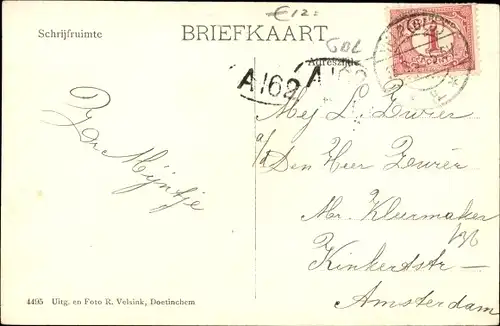 €12=
Schrijfruimte
BRIEFKAART
GBL
Adreszijde
1
A162
A162
Mej L. Zwier
a/d
Den Heer Zwier
Mr. Kleermaker
Kinkertstr
Amsterdam
Mijntje
4495 Uitg. en Foto R. Velsink, Doetinchem